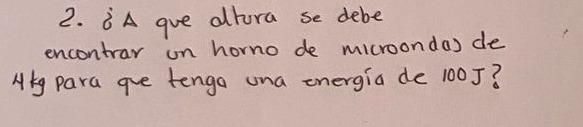 2. ¿A que altura se debe
encontrar un horno de microondas de
4kg para que tenga una energía de 100J?